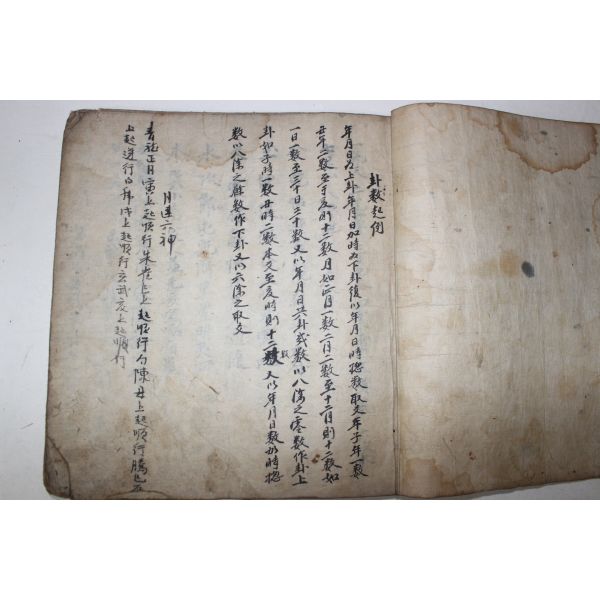 卦數起例
年月日爲上卦年月日加時爲下卦復以年月日時揔數取爻年子年一數
丑年二數至于亥則十二數月如正月一數二月二數至十二月則十二數如
一日一數至三十日三十數又以年月日共卦或數以八除之零數作卦上
卦如子時一數丑時二數本文至亥時則十二數又以年月日數加時揔
數以八除之餘數作下卦又以六除之取爻
月建六神
青龍正月寅上起順行朱雀巳上起順行勾陳丑上起順行騰巳在
上起逆行白乕戌上起順行玄武亥上起順行